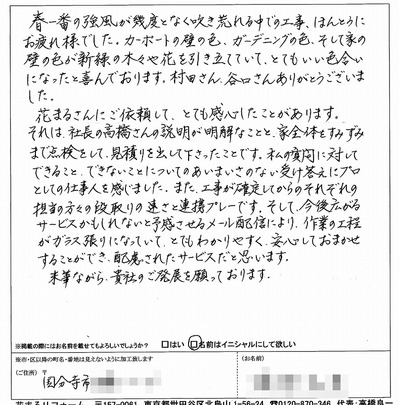 春一番の強風が幾度となく吹き荒れる中での工事、ほんとうに
お疲れ様でした。カーポートの壁の色、ガーデニングの色、そして家の
壁の色が新緑の木々や花を引き立てていて、とてもいい色合い
になったと喜んでおります。村田さん、谷口さんありがとうございま
した。
花まるさんにご依頼して、とても感心したことがあります。
それは、社長の高橋さんの説明が明解なことと、家全体をすみずみ
まで点検をして、見積りを出して下さったことです。私の質問に対して
できること、できないことについてのあいまいさのない受け答えにプロ
としての仕事人を感じました。また、工事が確定してからのそれぞれの
担当の方々の段取りの速さと連携プレーです。そして、今後広がる
サービスかもしれないと予感させるメール配信により、作業の工程
がガラス張りになっていて、とてもわかりやすく、安心しておまかせ
することができ、配慮されたサービスだと思います。
末筆ながら、貴社のご発展を願っております。
※掲載の際にはお名前を載せてもよろしいでしょうか? □はい □名前はイニシャルにして欲しい
※市・区以降の町名・番地は見えないように加工致します
(ご住所) 〒
国分寺市
(お名前)
花まるリフォーム 〒157-0061 東京都世田谷区北烏山1-56-24 ☎0120-870-346 代表:高橋良一